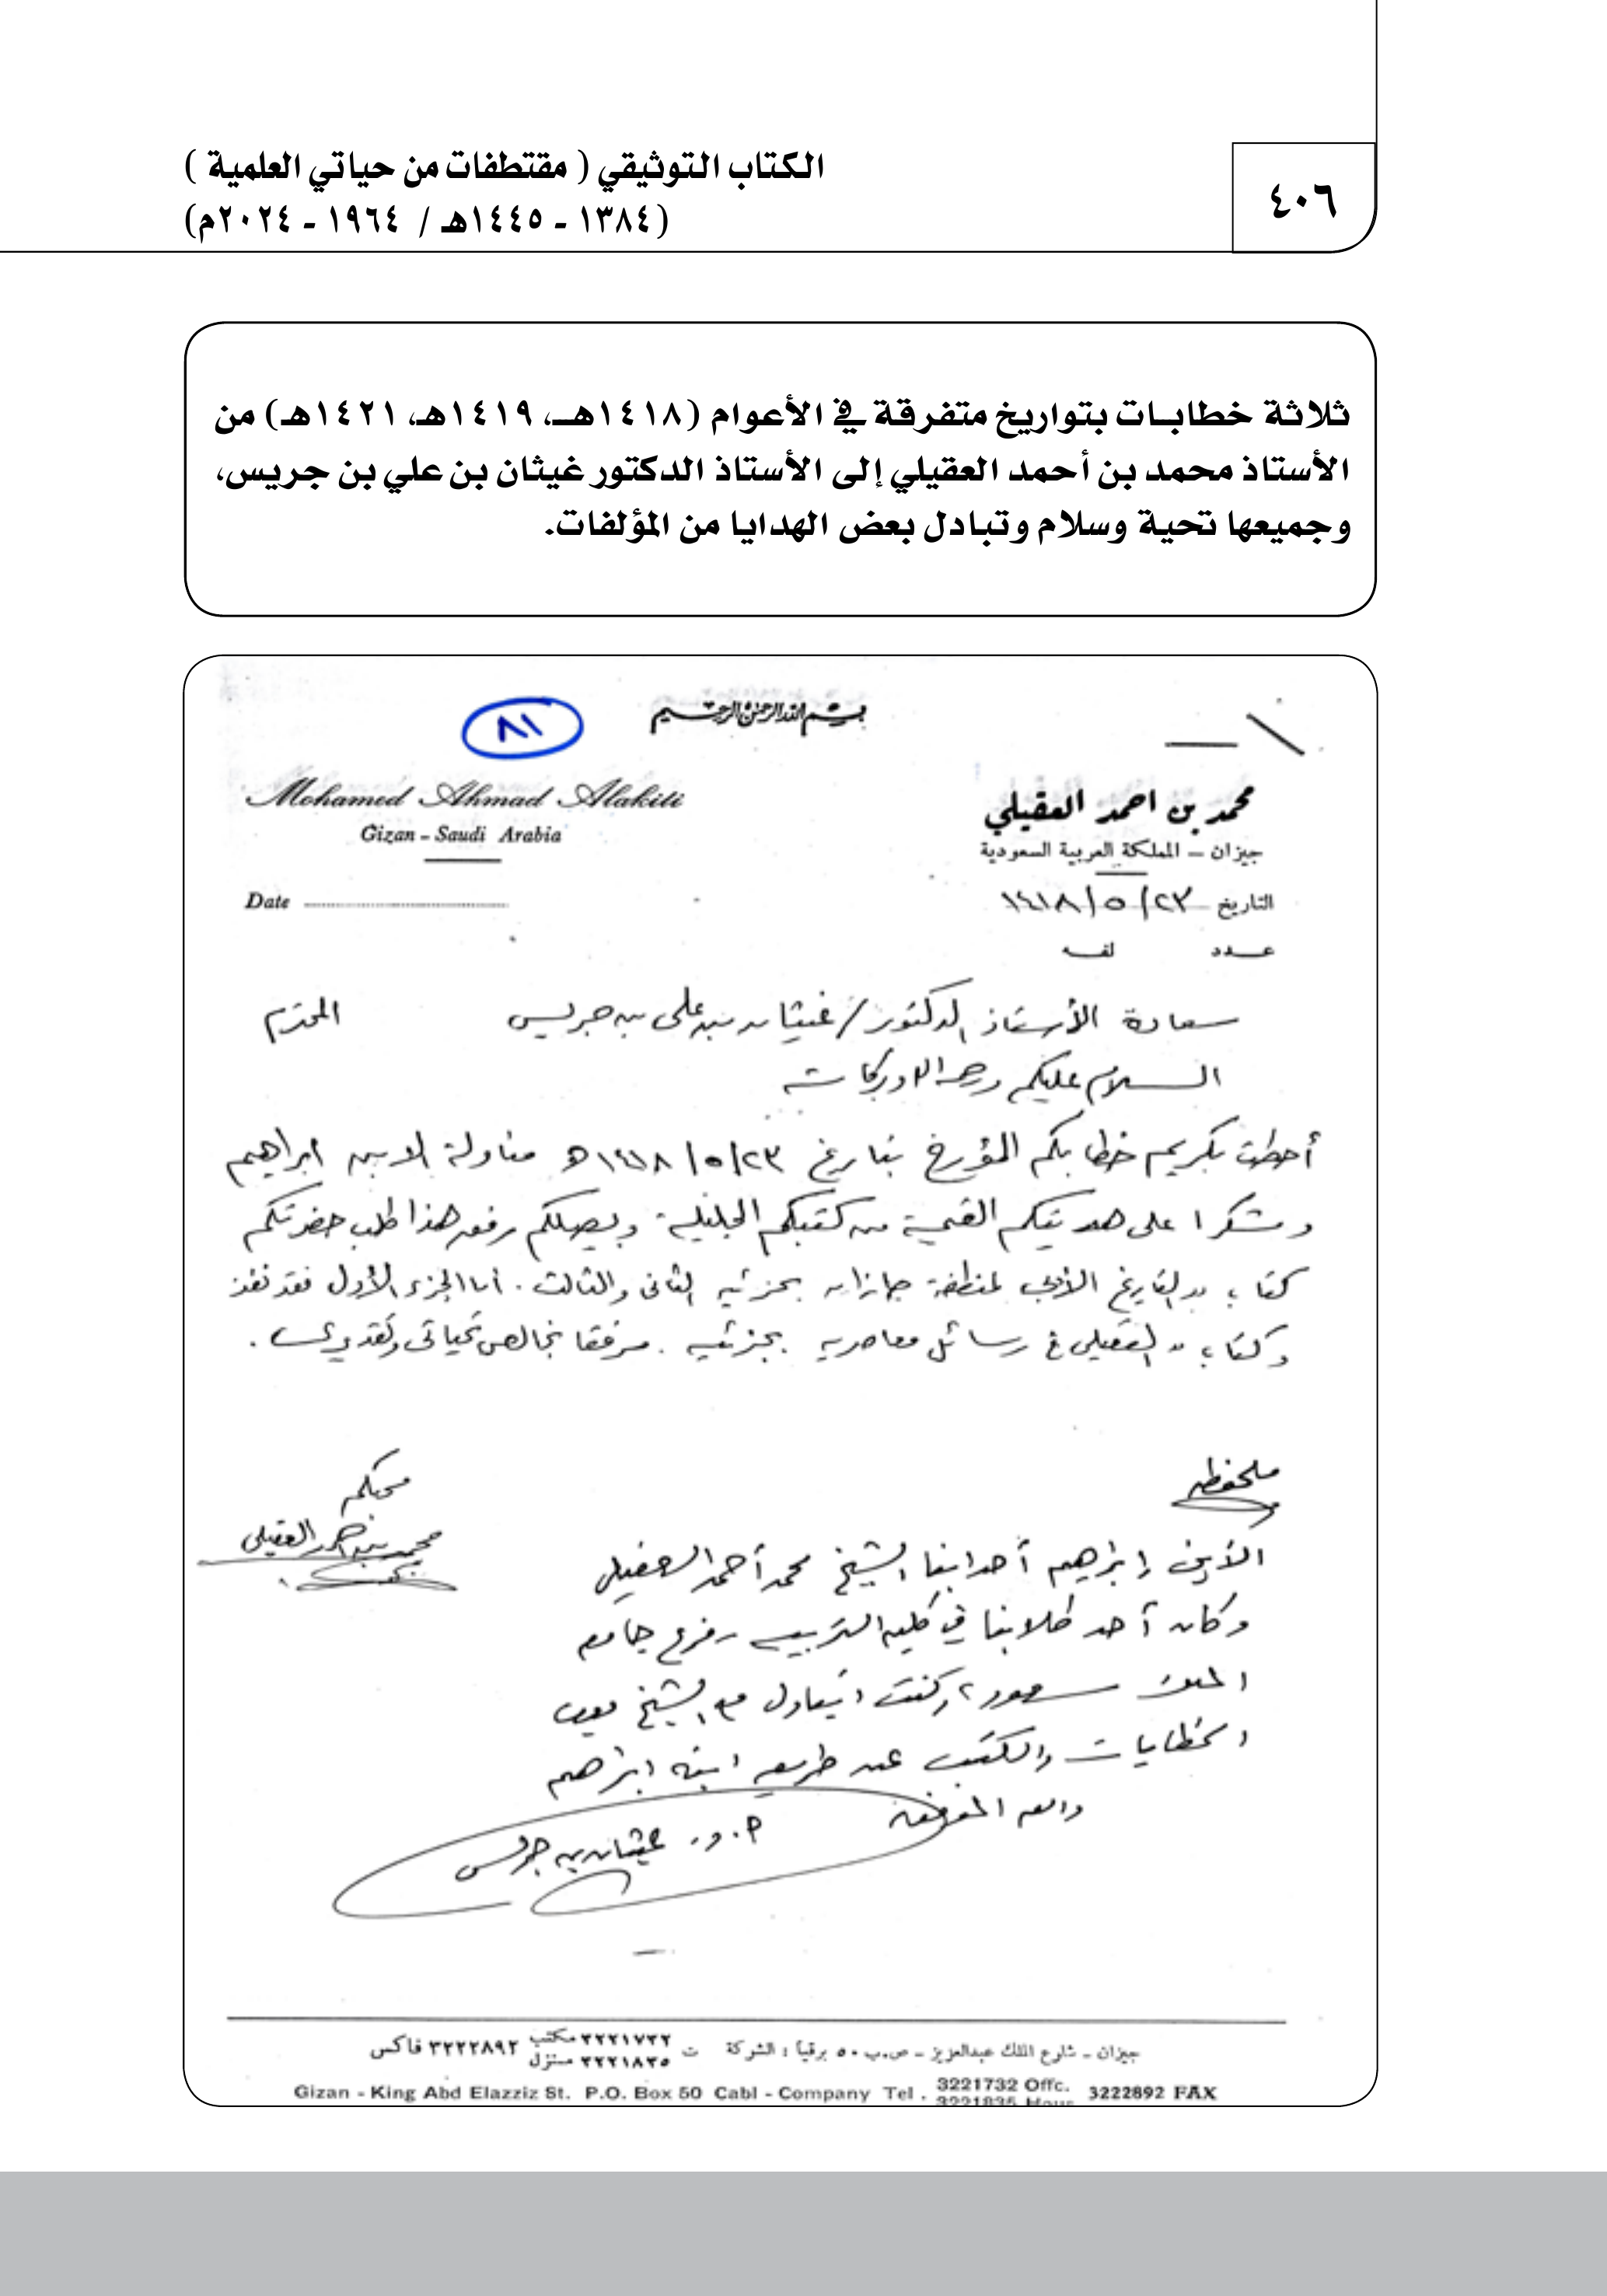 الكتاب التوثيقي ( مقتطفات من حياتي العلمية )
(١٣٨٤ - ١٤٤٥هـ / ١٩٦٤ - ٢٠٢٤م)
٤٠٦
ثلاثة خطابات بتواريخ متفرقة في الأعوام (١٤١٨هـ، ١٤١٩هـ، ١٤٢١هـ) من
الأستاذ محمد بن أحمد العقيلي إلى الأستاذ الدكتور غيثان بن علي بن جريس،
وجميعها تحية وسلام وتبادل بعض الهدايا من المؤلفات.
بسم الله الرحمن الرحيم
٨١
محمد بن احمد العقيلي
Mohamed Ahmad Alakili
جيزان – المملكة العربية السعودية
Gizan – Saudi Arabia
التاريخ ٢٣/٥/١٤١٨
Date
عدد لفه
سعادة الأستاذ الدكتور/ غيثان بن على بن جريس المحترم
السلام عليكم ورحمة الله وبركاته
أحطت بكريم خطابكم المؤرخ بتاريخ ٢٣/٥/١٤١٨ هـ مناولة الابن ابراهيم
وشكرا على هديتكم القيمة من كتبكم الجليلة ويصلكم رفق هذا طلب حضرتكم
كتاب " التاريخ الأدبي لمنطقة جازان بجزئيه الثانى والثالث . أما الجزء الأول فقد نفذ
وكتاب " العقيلى في رسائل معاصريه بجزئيه . مرفقا بخالص تحياتى وتقديرى .
محبكم
محمد بن احمد العقيلى
ملحوظه
الأبن إبراهيم أحد ابناء الشيخ محمد أحمد العقيلي
وكان أحد طلابنا في كلية التربية - فرع جامعة
الملك سعود، وكنت اتبادل مع الشيخ بعض
الخطابات والكتب عن طريق ابنه ابراهيم
والله الموفق
أ. د. غيثان بن جريس
جيزان – شارع الملك عبدالعزيز – ص.ب ٥٠ برقياً : الشركة ت ٣٢٢١٧٣٢ مكتب ٣٢٢١٨٣٥ منزل ٣٢٢٢٨٩٢ فاكس
Gizan - King Abd Elazziz St. P.O. Box 50 Cabl - Company Tel . 3221732 Offc. 3221835 Hous 3222892 FAX